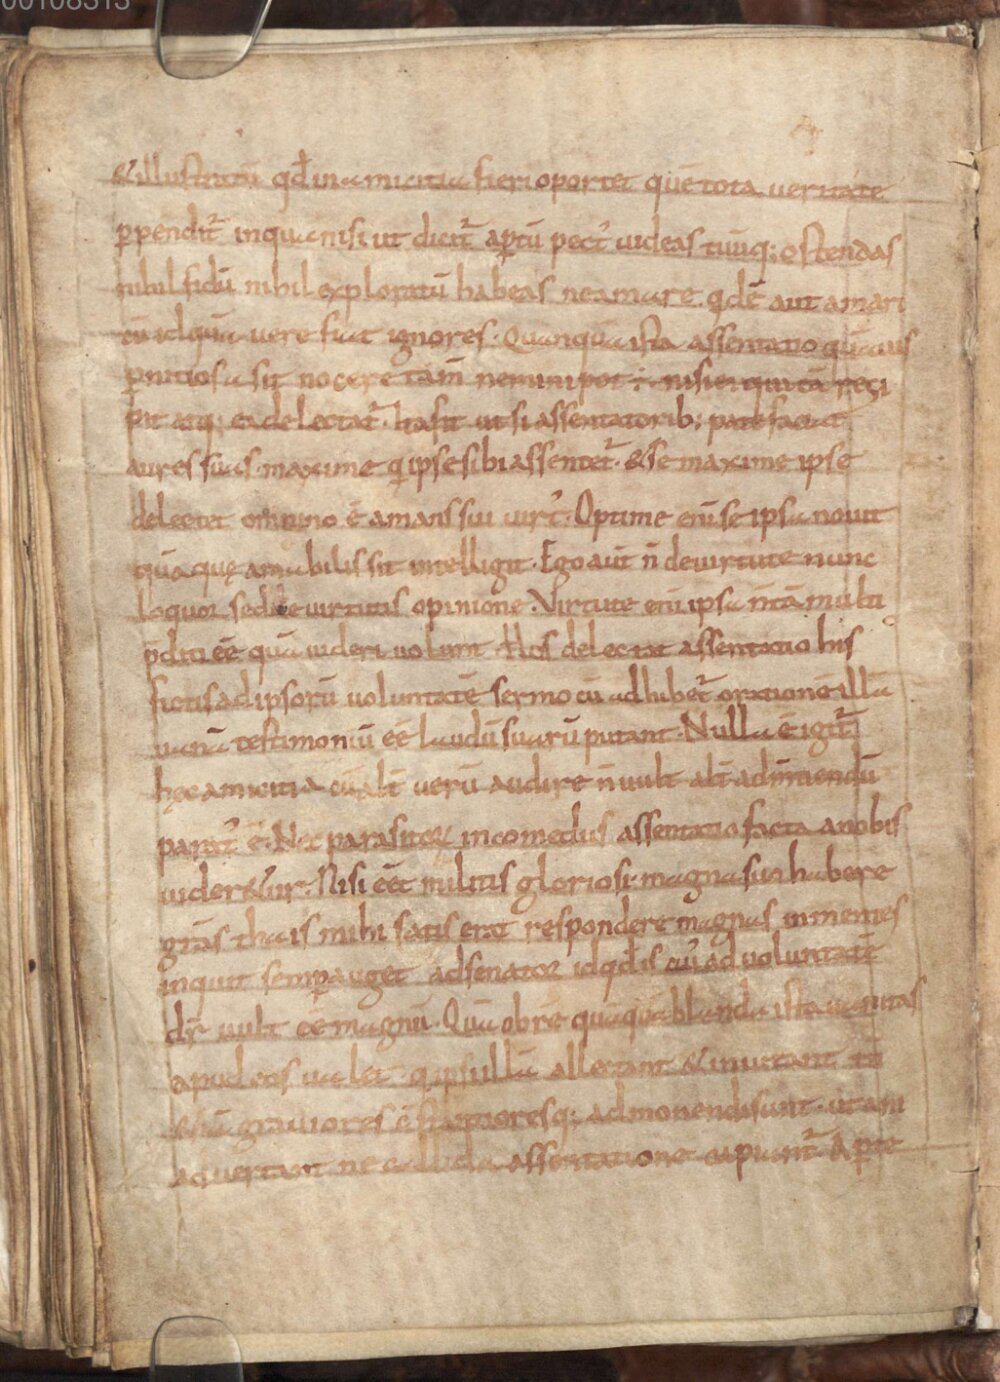 00108313
&illustratū qđ in amicitia fieri oportet que tota veritate
ꝑpendit᷑ in qua nisi ut dicit᷑ aꝑtū pect᷒ uideas tuūq; ostendas
nihil fidū nihil exploratū habeas ne amare qdē aut amari
cū id quā uere fiat ignores. Quanquā ista assentatio quāuis
ꝑnitiosa sit nocere tam̄ nemini pot ÷ nisi ei qui eā reci
pit atq; ea delectat᷑. Ita fit ut si assentatorib; patefaciat
aures suas maxime q ipse sibi assentet᷑. & se maxime ipse
delectet omnino ē amans sui uirt᷒. Optime eni se ipsa nouit
quā quę amabilis sit intelligit. Ego aut n̄ de uirtute nunc
loquor sed de uirtutis opinione. Virtute eni ipsa n̄ tā multi
p̄diti eē quā uideri uolunt. Hos delectat assentatio his
fictis ad ipsorū uoluntatē sermo cū adhibet᷑ orationē illā
uanā testimoniū eē laudū suarū putant. Nulla ē igit᷑
hęc amicitia cū alt̄ uerū audire n̄ uult alt̄ ad mentiendū
parat᷒ ē. Nec parasitoꝝ in comediis assentatio faceta nobis
uideret᷑ur. Nisi eēt milites gloriosi magnas uō habere
grās thais mihi satis erat respondere magnas in mentes
inquit semꝑ auget adsenator id qđ is cui᷒ ad uoluntatē
dr̄ uult eē magnū. Quā obrē quāquā blanda ista uanitas
apud eos ualet q ipsi illā allectant & inuitant tn̄
&iā grauiores cstantioresq; admonendi sunt ut ani
aduertant ne callida assentatione capiant᷑. Aꝑte